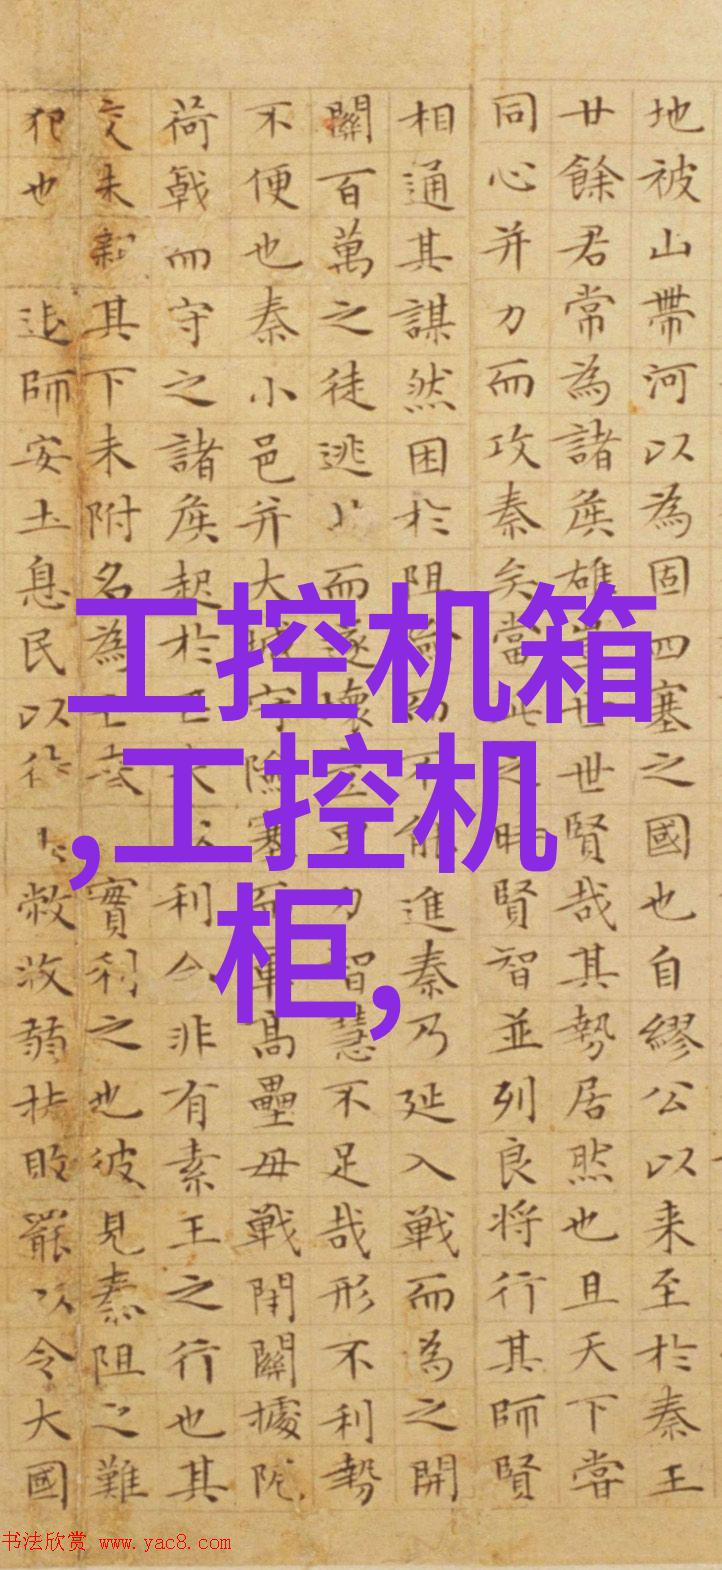 地被山帶河以為固四塞之國也自繆公以来至於秦王
廿餘君常為諸侯雄豈世世賢哉其勢居然也且天下嘗
同心并力而攻秦矣當此之時賢智並列良将行其師賢
相通其謀然困於阻險而不能進秦乃延入戰而為之開
關百萬之徒逃而遂壞豈勇力智慧不足哉形不利勢
不便也秦小邑并大城守險塞而軍高壘毋戰閉關據阨
荷戟而守之諸侯起於匹夫以利今非有素王之行也其
交未親其下未附名為亡秦實利之也彼見秦阻之難
犯也退師安土息民以待敝收弱扶敗罷以令大國
工控机箱
,工控机
柜,
书法欣赏 www.yac8.com